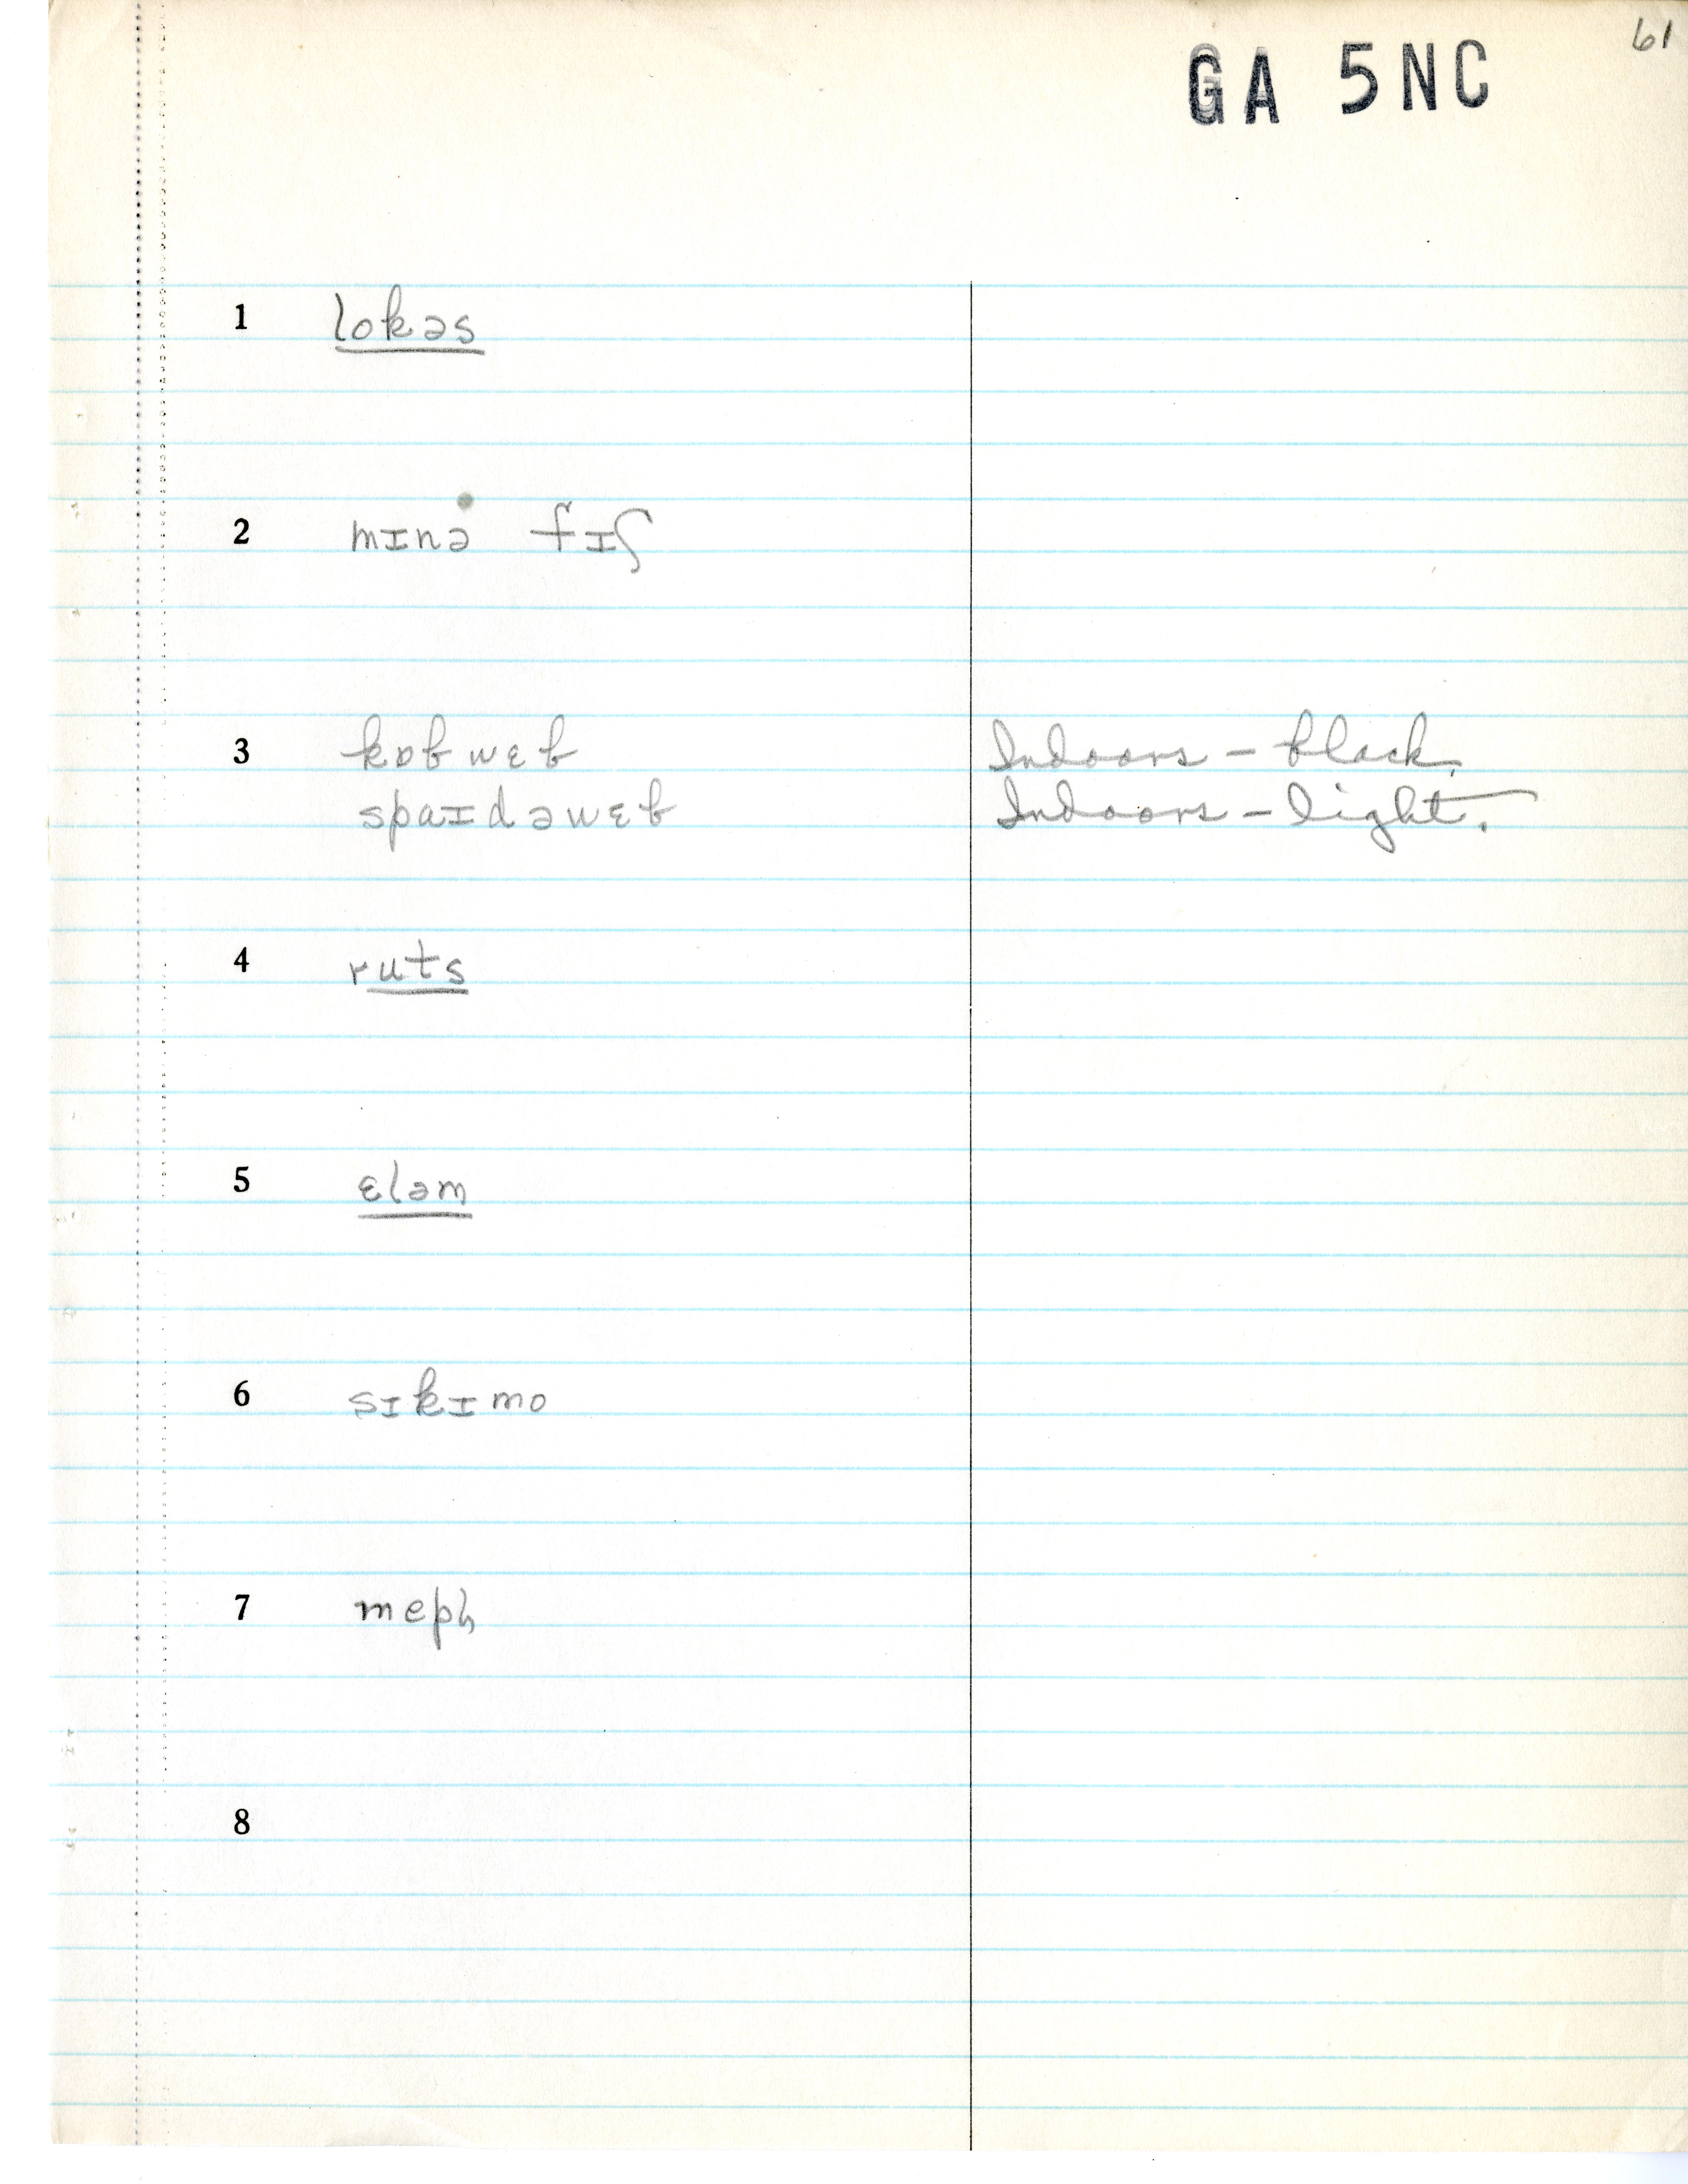 61
GA 5NC
1 lokəs
2 mɪnə fɪʃ
3 kɒbwɛb Indoors – black.
spaɪdəwɛb Indoors – light.
4 ruts
5 ɛləm
6 sɪkɪmo
7 mepɫ
8